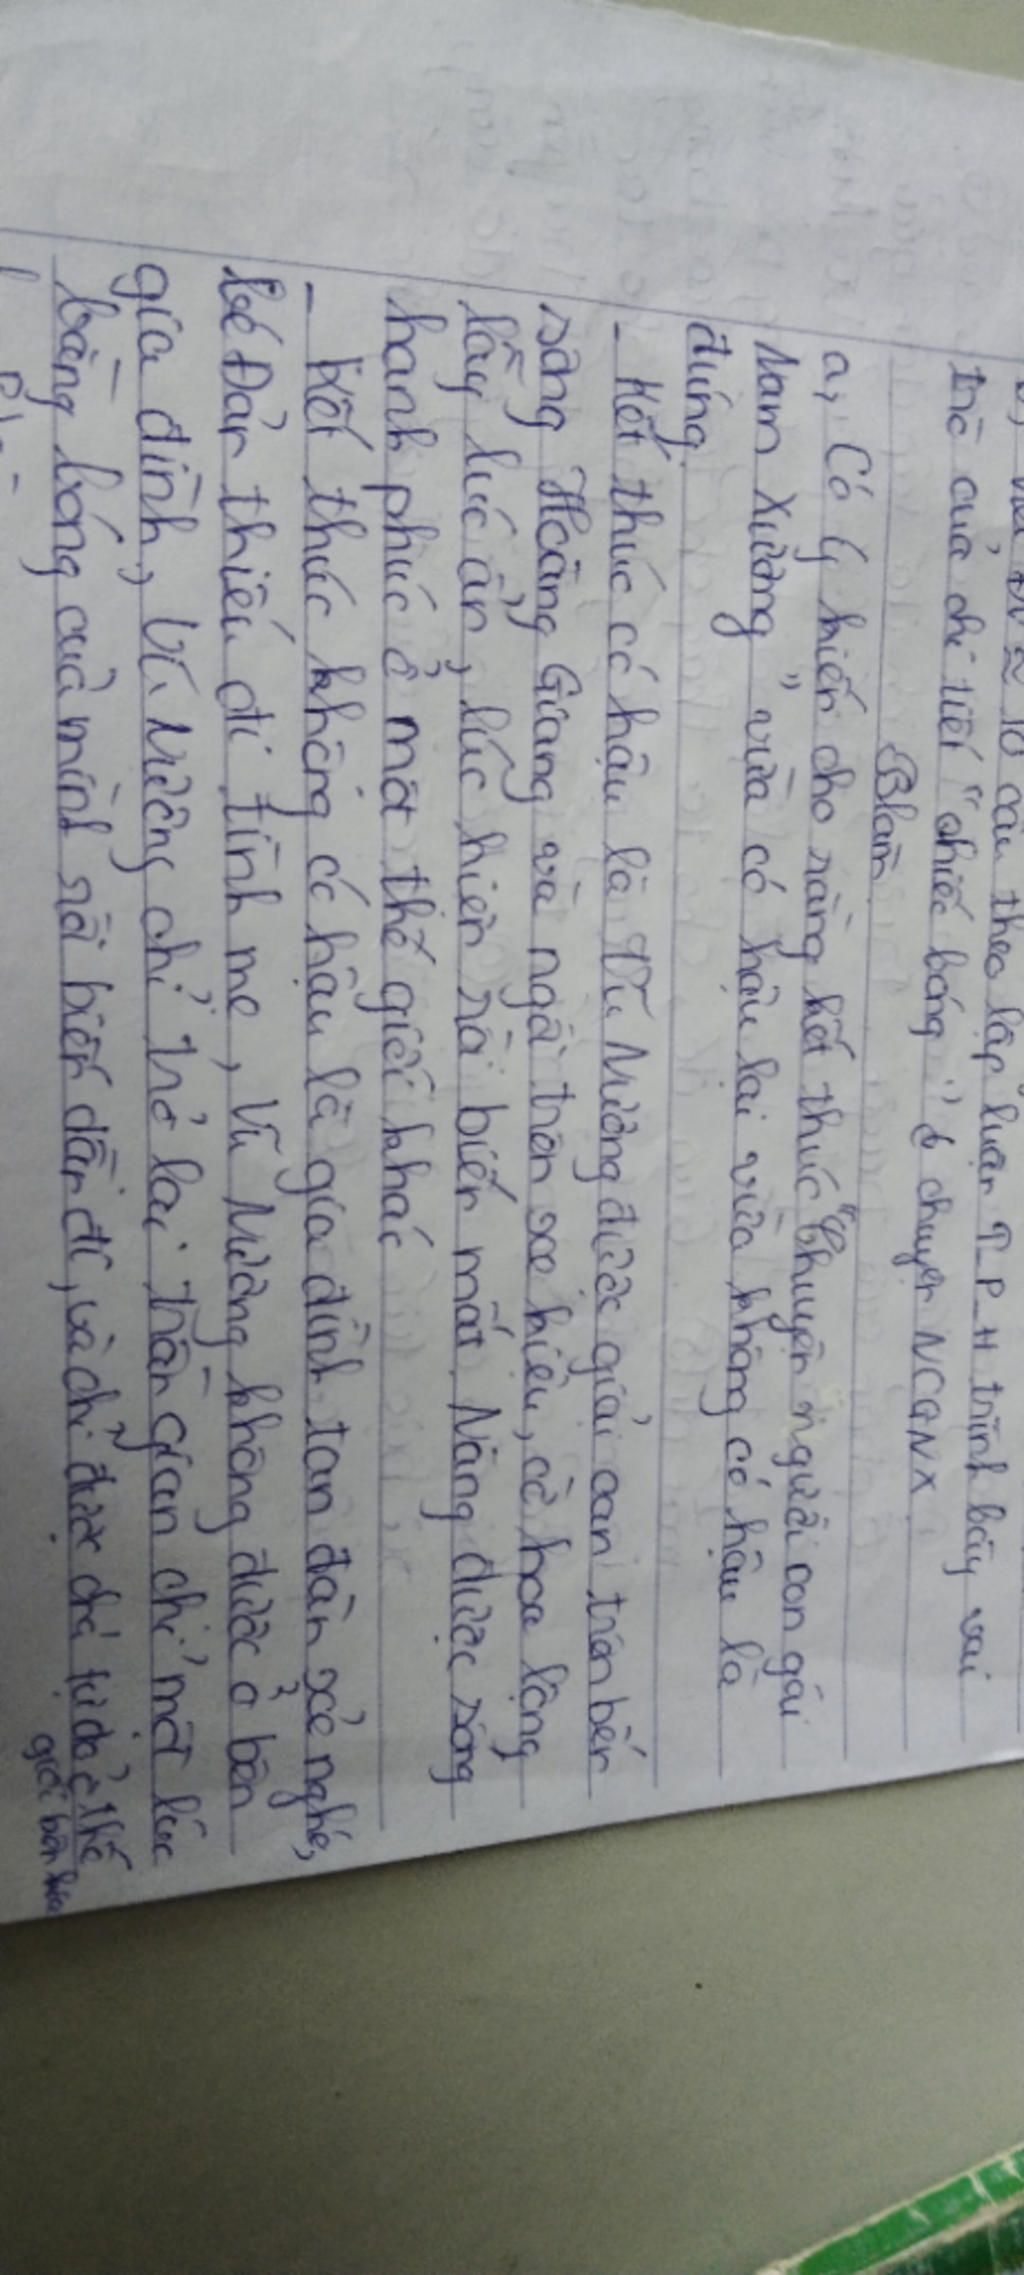 b, viết ĐV ≈ 10 câu theo lập luận T-P-H trình bày vai
trò của chi tiết "chiếc bóng" ở chuyện NCGNX
Blàm
a, Có ý kiến cho rằng kết thúc "Chuyện người con gái
Nam Xương" vừa có hậu lại vừa không có hậu là
đúng.
- Kết thúc có hậu là Vũ Nương được giải oan trên bến
sông Hoàng Giang và ngồi trên xe kiệu, cờ hoa lộng
lẫy lúc ẩn, lúc hiện rồi biến mất. Nàng được sống
hanh phúc ở một thế giới khác
- Kết thúc không có hậu là gia đình tan đàn xẻ nghé,
bé Đản thiếu đi tình mẹ, Vũ Nương không được ở bên
gia đình, Vũ Nương chỉ trở lại trần gian chỉ một lúc
bằng bóng của mình rồi biến dần đi, và chỉ được ở thế
giới bên kia